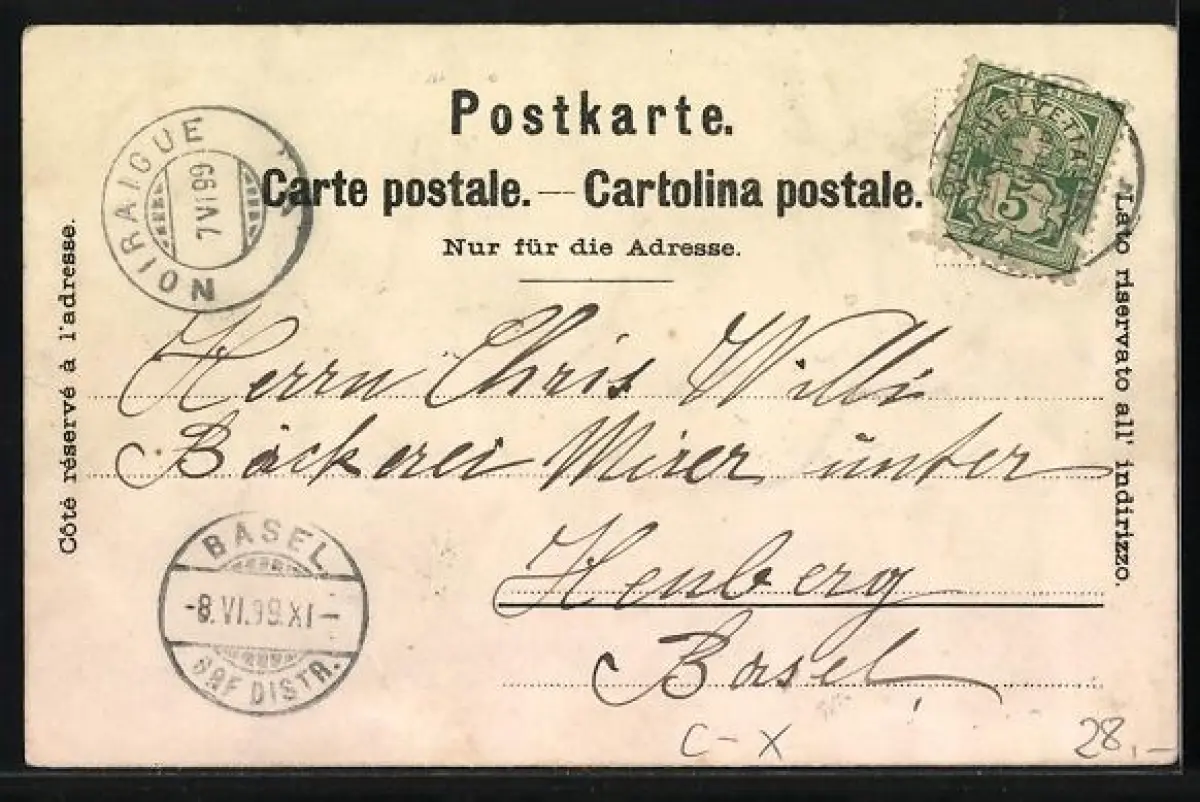 Postkarte.
Carte postale. — Cartolina postale.
Nur für die Adresse.
Côté réservé à l'adresse.
Lato riservato all' indirizzo.
NOIRAIGUE
7 VI 99
HELVETIA
5
Herrn Chris Willi
Bäckerei Mirer unter
Heuberg
Basel
BASEL
-8.VI.99.XI-
BRF DISTR.
C-X
28,-